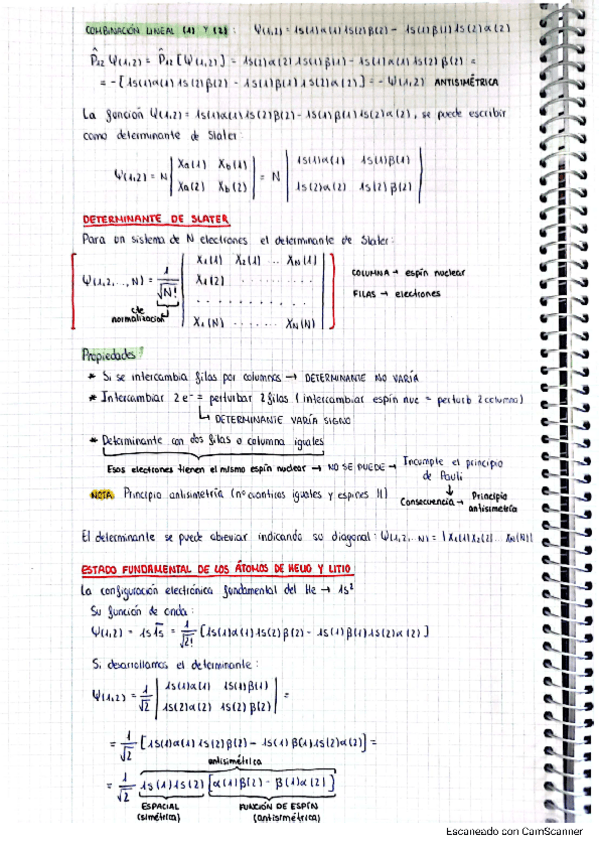 COMBINACIÓN LINEAL (1) Y (2): Ψ(1,2) = 1s(1)α(1)1s(2)β(2) - 1s(1)β(1)1s(2)α(2)
P̂₁₂ Ψ(1,2) = P̂₁₂ [Ψ(1,2)] = 1s(2)α(2)1s(1)β(1) - 1s(2)β(2)1s(1)α(1) =
= -[1s(1)α(1)1s(2)β(2) - 1s(1)β(1)1s(2)α(2)] = - Ψ(1,2) ANTISIMÉTRICA
La función Ψ(1,2) = 1s(1)α(1)1s(2)β(2) - 1s(1)β(1)1s(2)α(2), se puede escribir
como determinante de Slater:
Ψ(1,2) = N | Xa(1) Xb(1) | = N | 1s(1)α(1) 1s(1)β(1) |
| Xa(2) Xb(2) | | 1s(2)α(2) 1s(2)β(2) |
DETERMINANTE DE SLATER
Para un sistema de N electrones el determinante de Slater:
Ψ(1,2,..,N) = 1/√N! | X₁(1) X₂(1) ... X_N(1) |
| X₁(2) ........ |
| .......... |
| X₁(N) ....... X_N(N) |
cte normalización
COLUMNA → espín nuclear
FILAS → electrones
Propiedades:
* Si se intercambia filas por columnas → DETERMINANTE NO VARÍA
* Intercambiar 2 e⁻ = perturbar 2 filas (intercambiar espín nuc = perturb 2 columna)
↳ DETERMINANTE VARÍA SIGNO
* Determinante con dos filas o columna iguales
Esos electrones tienen el mismo espín nuclear → NO SE PUEDE → Incumple el principio de Pauli
Consecuencia → Principio antisimetría
NOTA Principio antisimetría (nº cuánticos iguales y espines 11)
El determinante se puede abreviar indicando su diagonal: Ψ(1,2,..N) = |X₁(1)X₂(2)... X_N(N)|
ESTADO FUNDAMENTAL DE LOS ÁTOMOS DE HELIO Y LITIO
La configuración electrónica fundamental del He → 1s²
Su función de onda:
Ψ(1,2) = 1s 1s̄ = 1/√2! [1s(1)α(1)1s(2)β(2) - 1s(1)β(1)1s(2)α(2)]
Si desarrollamos el determinante:
Ψ(1,2) = 1/√2 | 1s(1)α(1) 1s(1)β(1) | =
| 1s(2)α(2) 1s(2)β(2) |
= 1/√2 [1s(1)α(1)1s(2)β(2) - 1s(1)β(1)1s(2)α(2)] =
antisimétrica
= 1/√2 1s(1)1s(2) [α(1)β(2) - β(1)α(2)]
ESPACIAL (simétrica)
FUNCIÓN DE ESPÍN (antisimétrica)
Escaneado con CamScanner